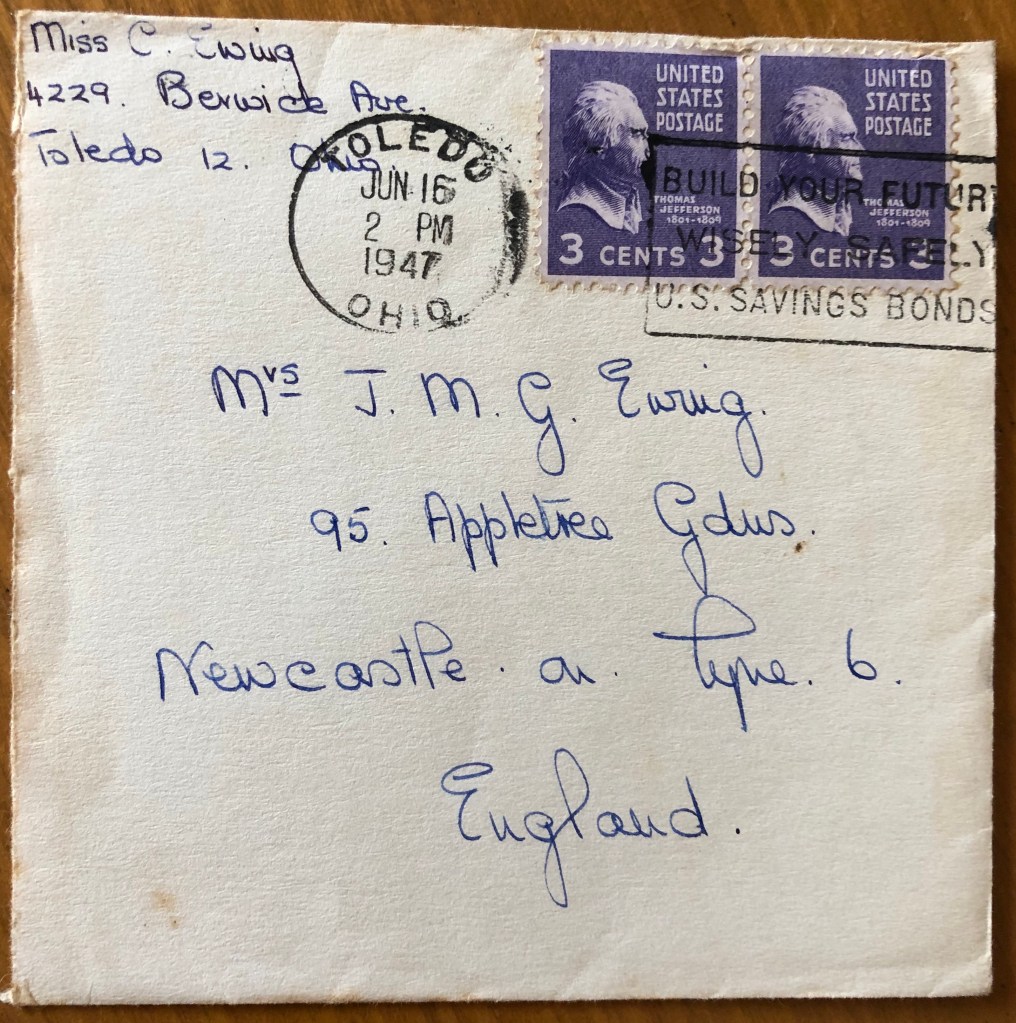 Miss C. Ewing
4229. Berwick Ave.
Toledo 12. Ohio
TOLEDO
JUN 16
2 PM
1947
OHIO
UNITED
STATES
POSTAGE
THOMAS
JEFFERSON
1801-1809
3 CENTS 3
UNITED
STATES
POSTAGE
THOMAS
JEFFERSON
1801-1809
3 CENTS 3
BUILD YOUR FUTUR
WISELY SAFELY
U.S. SAVINGS BONDS
Mrs J. M. G. Ewing.
95. Appletree Gdns.
Newcastle. on. Tyne. 6.
England.